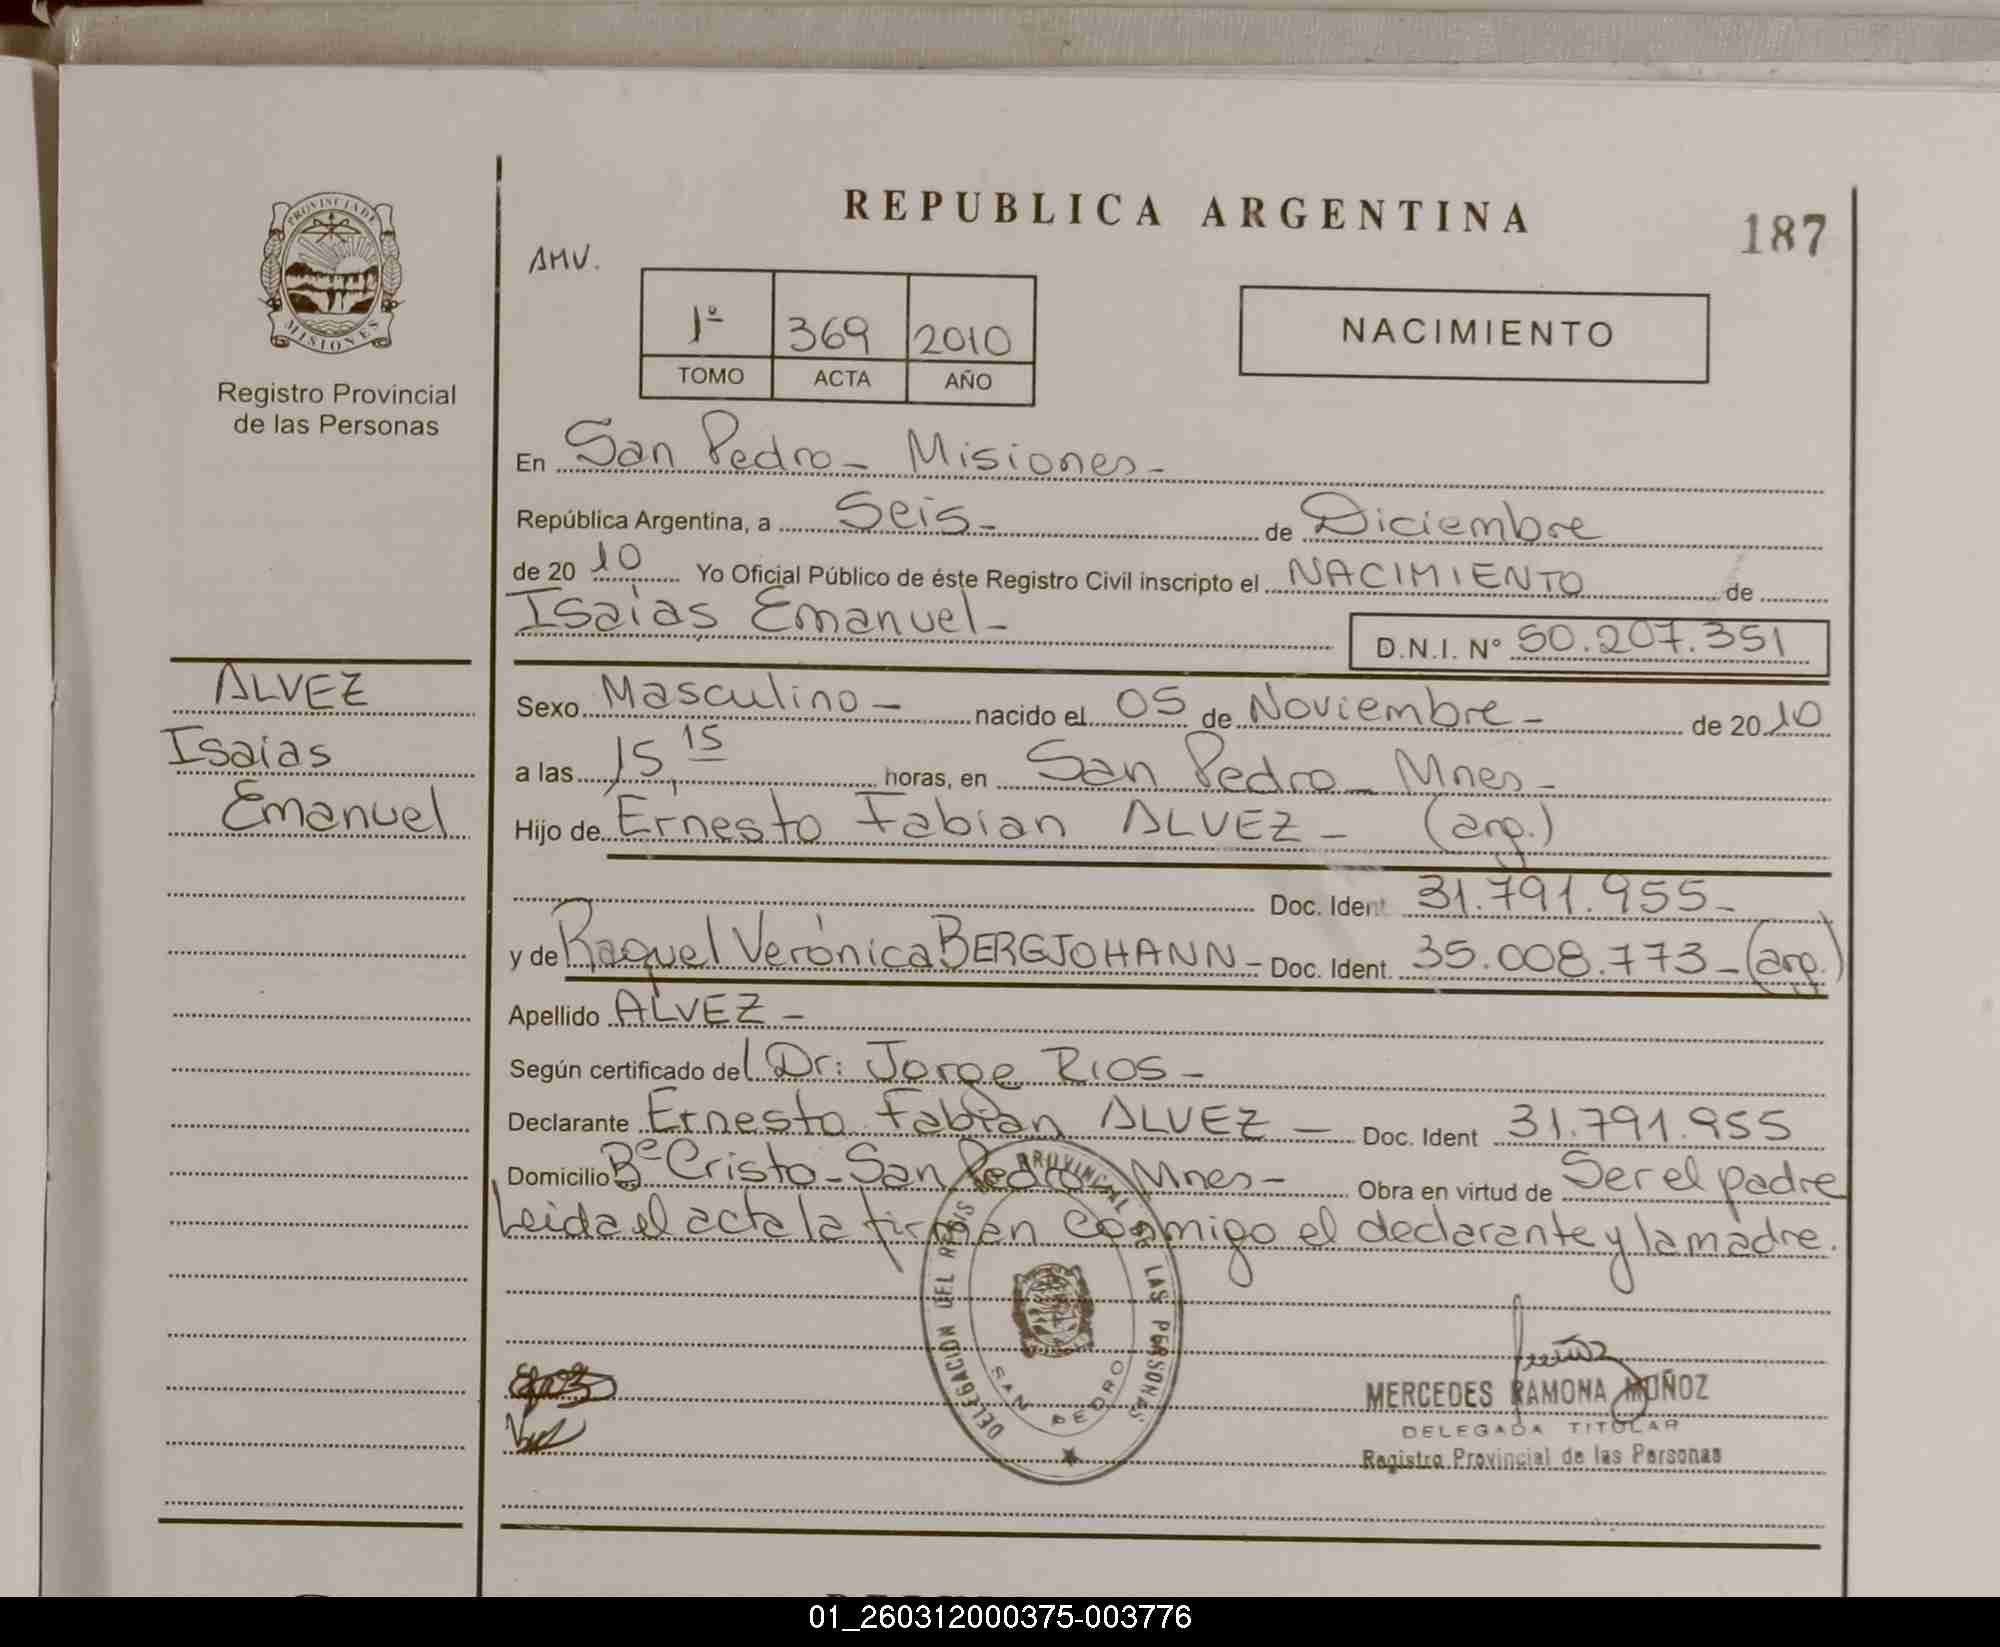 REPUBLICA ARGENTINA
187
PROVINCIA DE
MISIONES
AMV.
1º 369 2010
TOMO ACTA AÑO
NACIMIENTO
Registro Provincial
de las Personas
En San Pedro - Misiones -
República Argentina, a Seis - de Diciembre
de 20 10 Yo Oficial Público de éste Registro Civil inscripto el NACIMIENTO de
Isaias Emanuel -
D.N.I. Nº 50.207.351
ALVEZ
Isaias
Emanuel
Sexo Masculino - nacido el 05 de Noviembre - de 20 10
a las 15,15 horas, en San Pedro - Mnes -
Hijo de Ernesto Fabian ALVEZ - (arg.)
Doc. Ident 31.791.955 -
y de Raquel Verónica BERGJOHANN - Doc. Ident. 35.008.773 - (arg.)
Apellido ALVEZ -
Según certificado del Dr: Jorge RIOS -
Declarante Ernesto Fabian ALVEZ - Doc. Ident 31.791.955
Domicilio Bº Cristo - San Pedro - Mnes - Obra en virtud de Ser el padre
Leida el acta la firman conmigo el declarante y la madre.
DELEGACION DEL REGIS PROVINCIAL DE LAS PERSONAS
SAN PEDRO
MERCEDES RAMONA MUÑOZ
DELEGADA TITULAR
Registro Provincial de las Personas
01_260312000375-003776